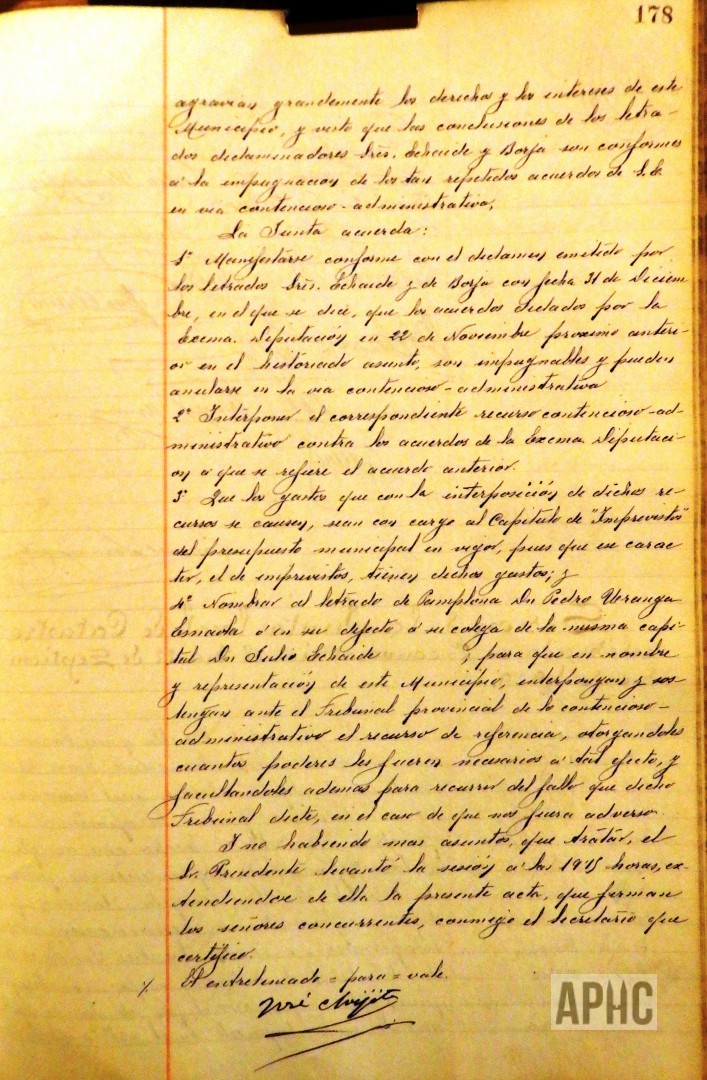 178
agravian grandemente los derechos y los intereses de este
Municipio, y visto que las conclusiones de los letra-
dos dictaminadores Srs. Echaide y Borja son conformes
á la impugnación de los tan repetidos acuerdos de S.E.
en vía contencioso-administrativa,
La Junta acuerda:
1º Manifestarse conforme con el dictamen emitido por
los letrados Srs. Echaide y de Borja con fecha 31 de Diciem
bre, en el que se dice, que los acuerdos dictados por la
Excma. Diputación en 22 de Noviembre próximo anteri-
or en el historiado asunto, son impugnables y pueden
anularse en la vía contencioso-administrativa
2º Interponer el correspondiente recurso contencioso-ad-
ministrativo contra los acuerdos de la Excma. Diputaci-
on á que se refiere el acuerdo anterior.
3º Que los gastos que con la interposición de dichos re-
cursos se causen, sean con cargo al Capítulo de "Imprevistos"
del presupuesto municipal en vigor, pues que ese carac-
ter, el de imprevistos, tienen dichos gastos; y
4º Nombrar al letrado de Pamplona Dn Pedro Uranga
Esnaola ó en su defecto á su colega de la misma capi-
tal Dn Julio Echaide ; para que en nombre
y representación de este Municipio, interpongan y sos
tengan ante el Tribunal provincial de lo contencioso-
administrativo el recurso de referencia, otorgandoles
cuantos poderes les fueren necesarios á tal efecto, y
facultandoles ademas para recurrir del fallo que dicho
Tribunal dicte, en el caso de que nos fuera adverso.
I no habiendo mas asuntos, que tratar, el
Sr. Presidente levantó la sesión á las 19'15 horas, ex-
tendiendose de ella la presente acta, que firman
los señores concurrentes, conmigo el Secretario que
certifico.
El entrelineado = para = vale.
José
APHC